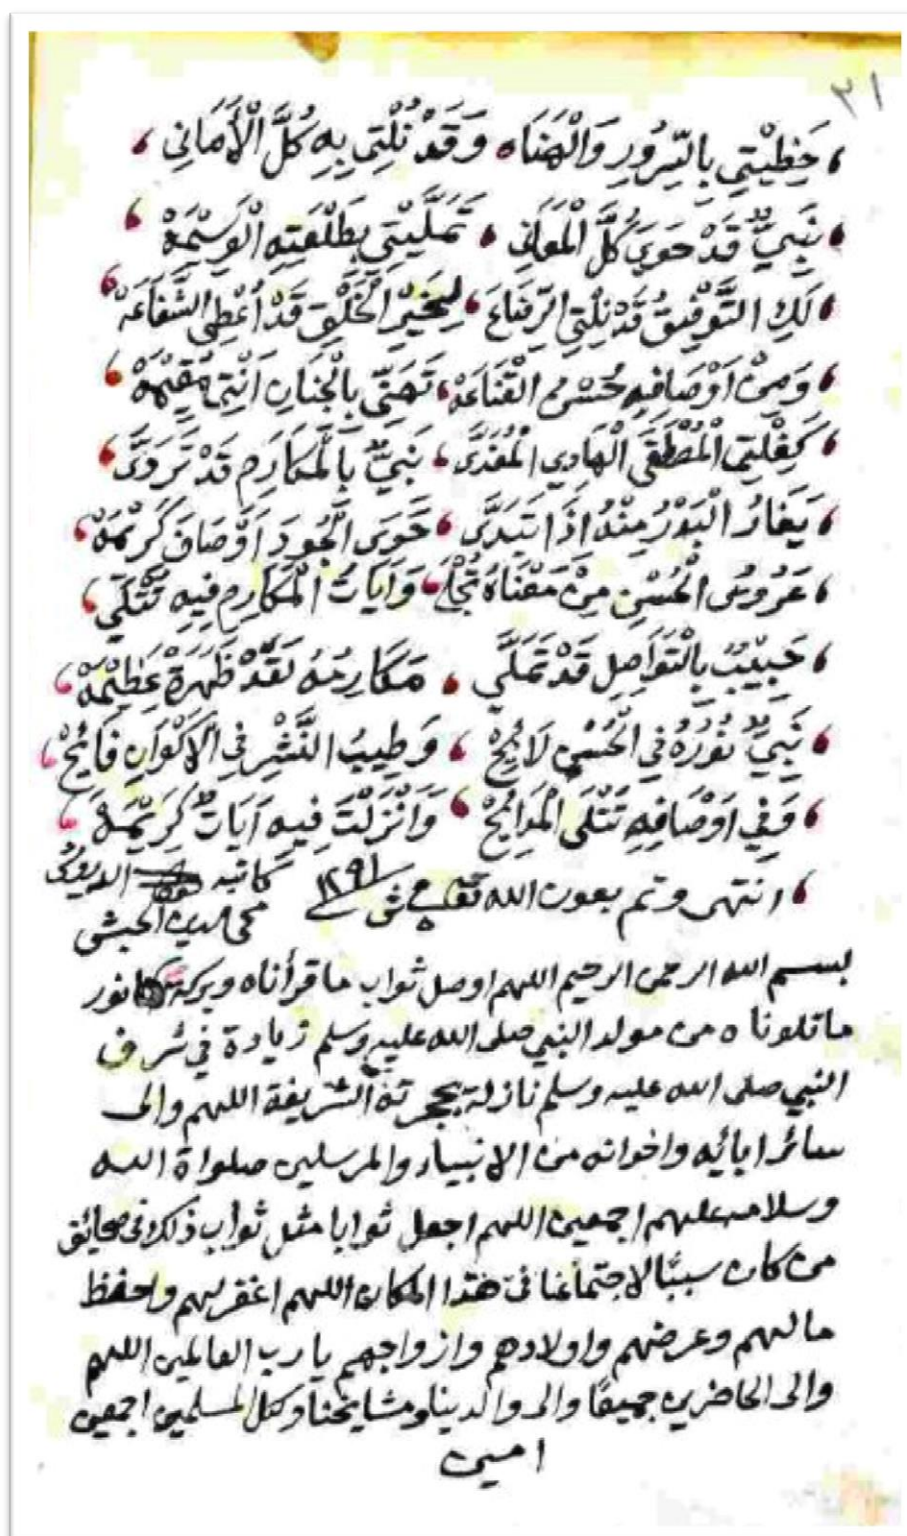 ٢١
، حَظِيْتِي بِالسُّرُورِ وَالْهَنَاه ، وَقَدْ نُلْتِي بِهِ كُلَّ الْأَمَانِي ،
، نَبِيٌّ قَدْ حَوَى كُلَّ الْمَعَانِي ، تَمَلَّيْتِي بِطَلْعَتِهِ الْوَسِيْمَهْ ،
، لَكِ التَّوْفِيقُ قَدْ نِلْتِي الرِّفَاعَ ، لِخَيْرِ الْخَلْقِ قَدْ اُعْطِي الشَّفَاعَهْ ،
، وَمِنْ اَوْصَافِهِ حُسْنُ الْقَنَاعَهْ ، تَهَنَّي بِالْجِنَانِ اَنْتِي مُقِيْمَهْ ،
، كَفِلْتِي الْمُصْطَفَى الْهَادِي الْمُفَدَّى ، نَبِيٌّ بِالْمَكَارِمِ قَدْ تَرَدَّى ،
، يَغَارُ الْبَدْرُ مِنْهُ اذَا تَبَدَّى ، حَوَى الْجُودَ اَوْصَافَ كَرِيْمَهْ ،
، عَرُوسُ الْحُسْنِ مِنْ مَغْنَاهُ تُجْلَى ، وَاَيَاتُ الْمَكَارِمِ فِيهِ تُتْلَى ،
، حَبِيْبٌ بِالتَّوَاصِلِ قَدْ تَمَلَّي ، مَكَارِمُهُ لَقَدْ ظَهَرَةْ عَظِيْمَهْ ،
، نَبِيٌّ نُوْرُهُ فِي الْحُسْنِ لَائِحْ ، وَطِيبُ النَّشْرِ فِي الْاَكْوَانِ فَائِحْ ،
، وَفِي اَوْصَافِهِ تُتْلَى الْمَدَائِحْ ، وَاَنْزَلَتْ فِيهِ اَيَاتٌ كَرِيْمَهْ ،
، انتهى وتم بعون الله تعالى ١٢٩١ كاتبه
محي الدين الحبشي
بسم الله الرحمن الرحيم اللهم اوصل ثواب ما قرأناه وبركة نور
ما تلوناه من مولد النبي صلى الله عليه وسلم زيادة في شرف
النبي صلى الله عليه وسلم نازلة بحجرته الشريفة اللهم والى
سائر ابائه واخوانه من الانبياء والمرسلين صلواة الله
وسلامه عليهم اجمعين اللهم اجعل ثوابا مثل ثواب ذلك في صحائق
من كان سببًا لاجتماعنا في هذا المكان اللهم اغفر لهم واحفظ
مالهم وعرضهم واولادهم وازواجهم يا رب العالمين اللهم
والى الحاضرين جميعًا والى والدينا ومشايخنا وكل المسلمين اجمعين
امين